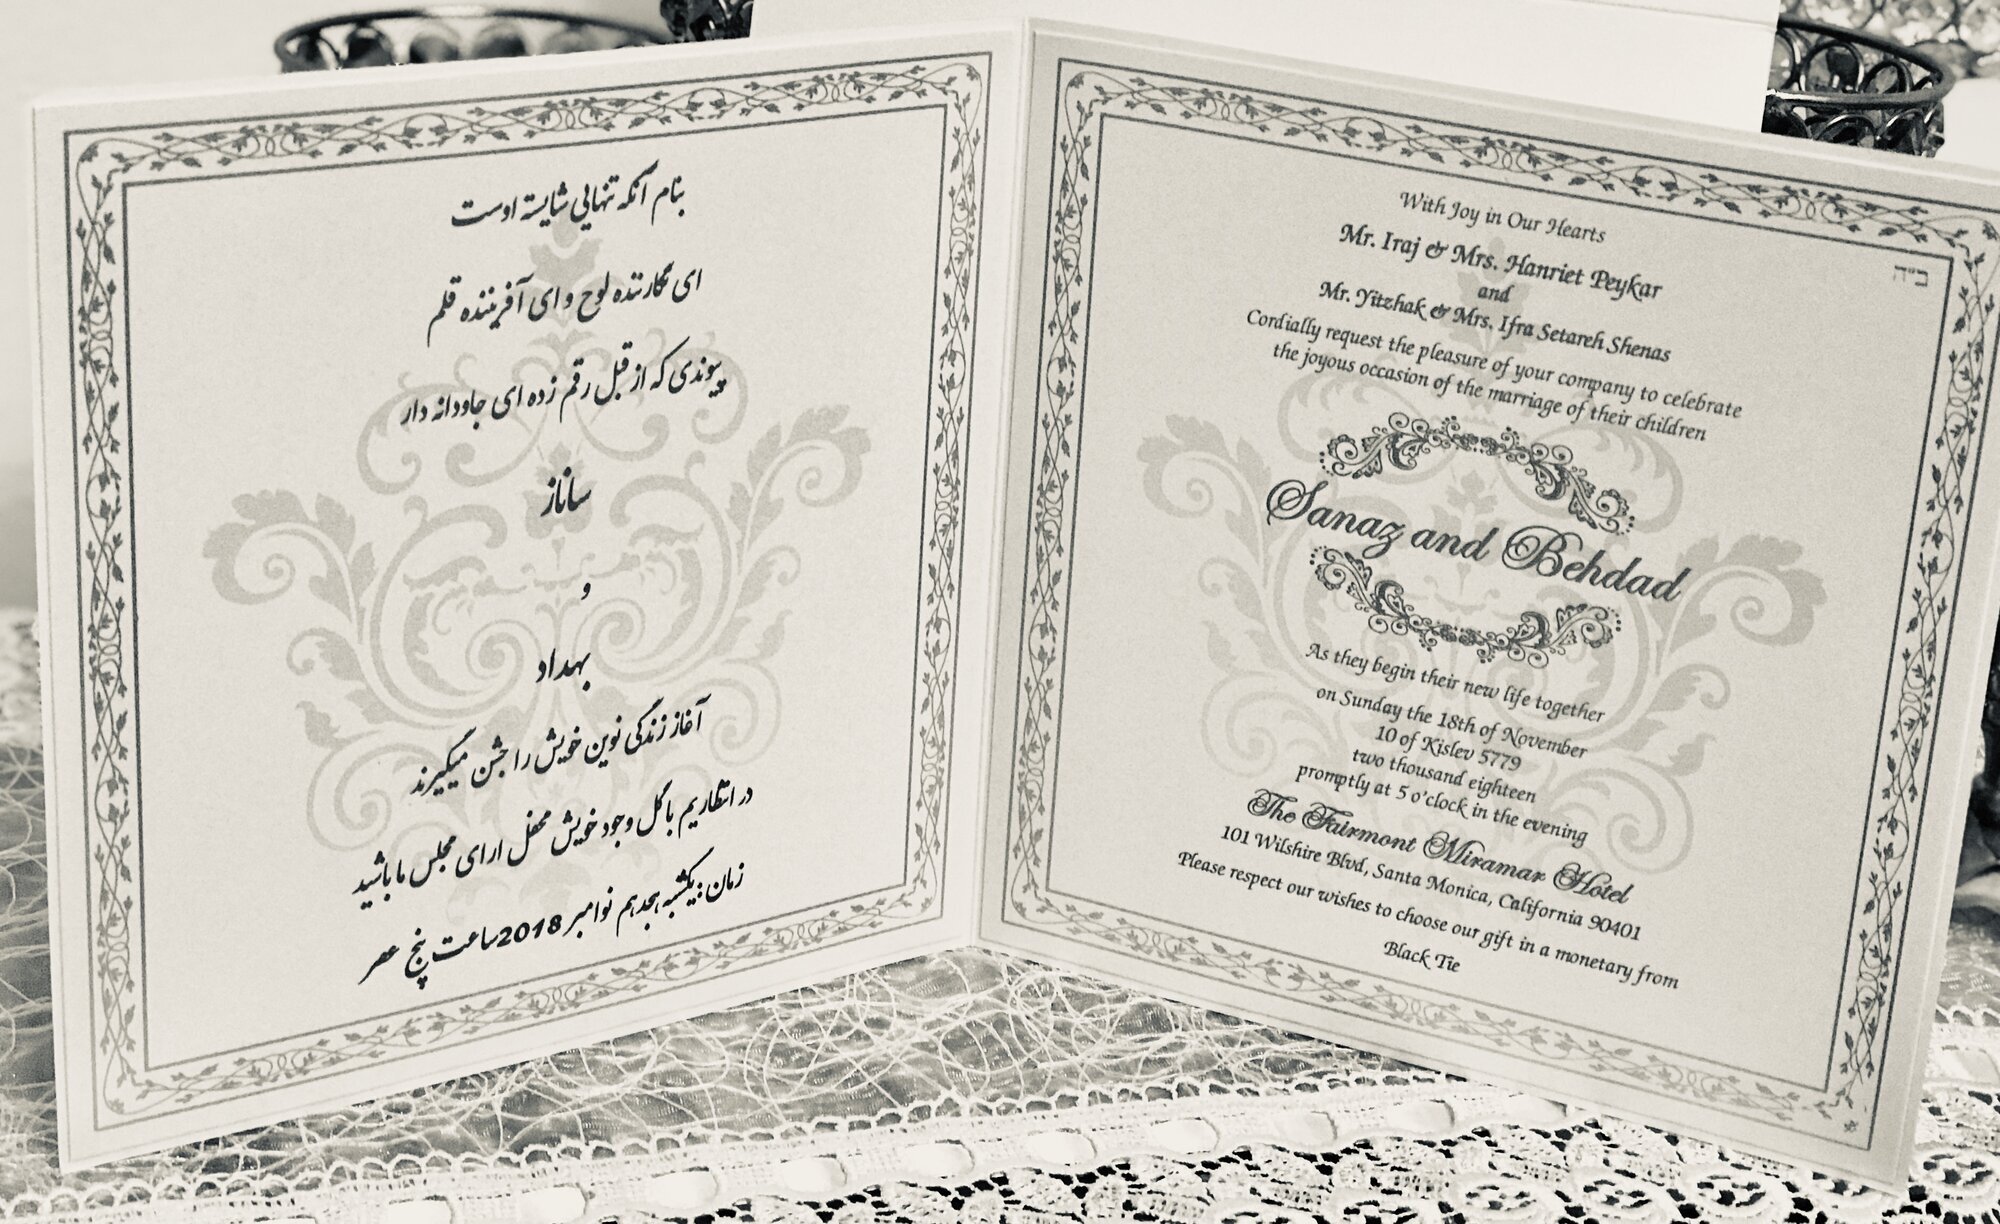 بنام آنکه تنهایی شایسته اوست
ای نگارننده لوح و ای آفریننده قلم
پیوندی که از قبل رقم زده ای جاودانه دار
ساناز
و
بهداد
آغاز زندگی نوین خویش را جشن میگیرند
در انتظاریم با گل وجود خویش محفل ارای مجلس ما باشید
زمان : یکشنبه هجدهم نوامبر 2018 ساعت پنج عصر
ב״ה
With Joy in Our Hearts
Mr. Iraj & Mrs. Hanriet Peykar
and
Mr. Yitzhak & Mrs. Ifra Setareh Shenas
Cordially request the pleasure of your company to celebrate
the joyous occasion of the marriage of their children
Sanaz and Behdad
As they begin their new life together
on Sunday the 18th of November
10 of Kislev 5779
two thousand eighteen
promptly at 5 o'clock in the evening
The Fairmont Miramar Hotel
101 Wilshire Blvd, Santa Monica, California 90401
Please respect our wishes to choose our gift in a monetary from
Black Tie